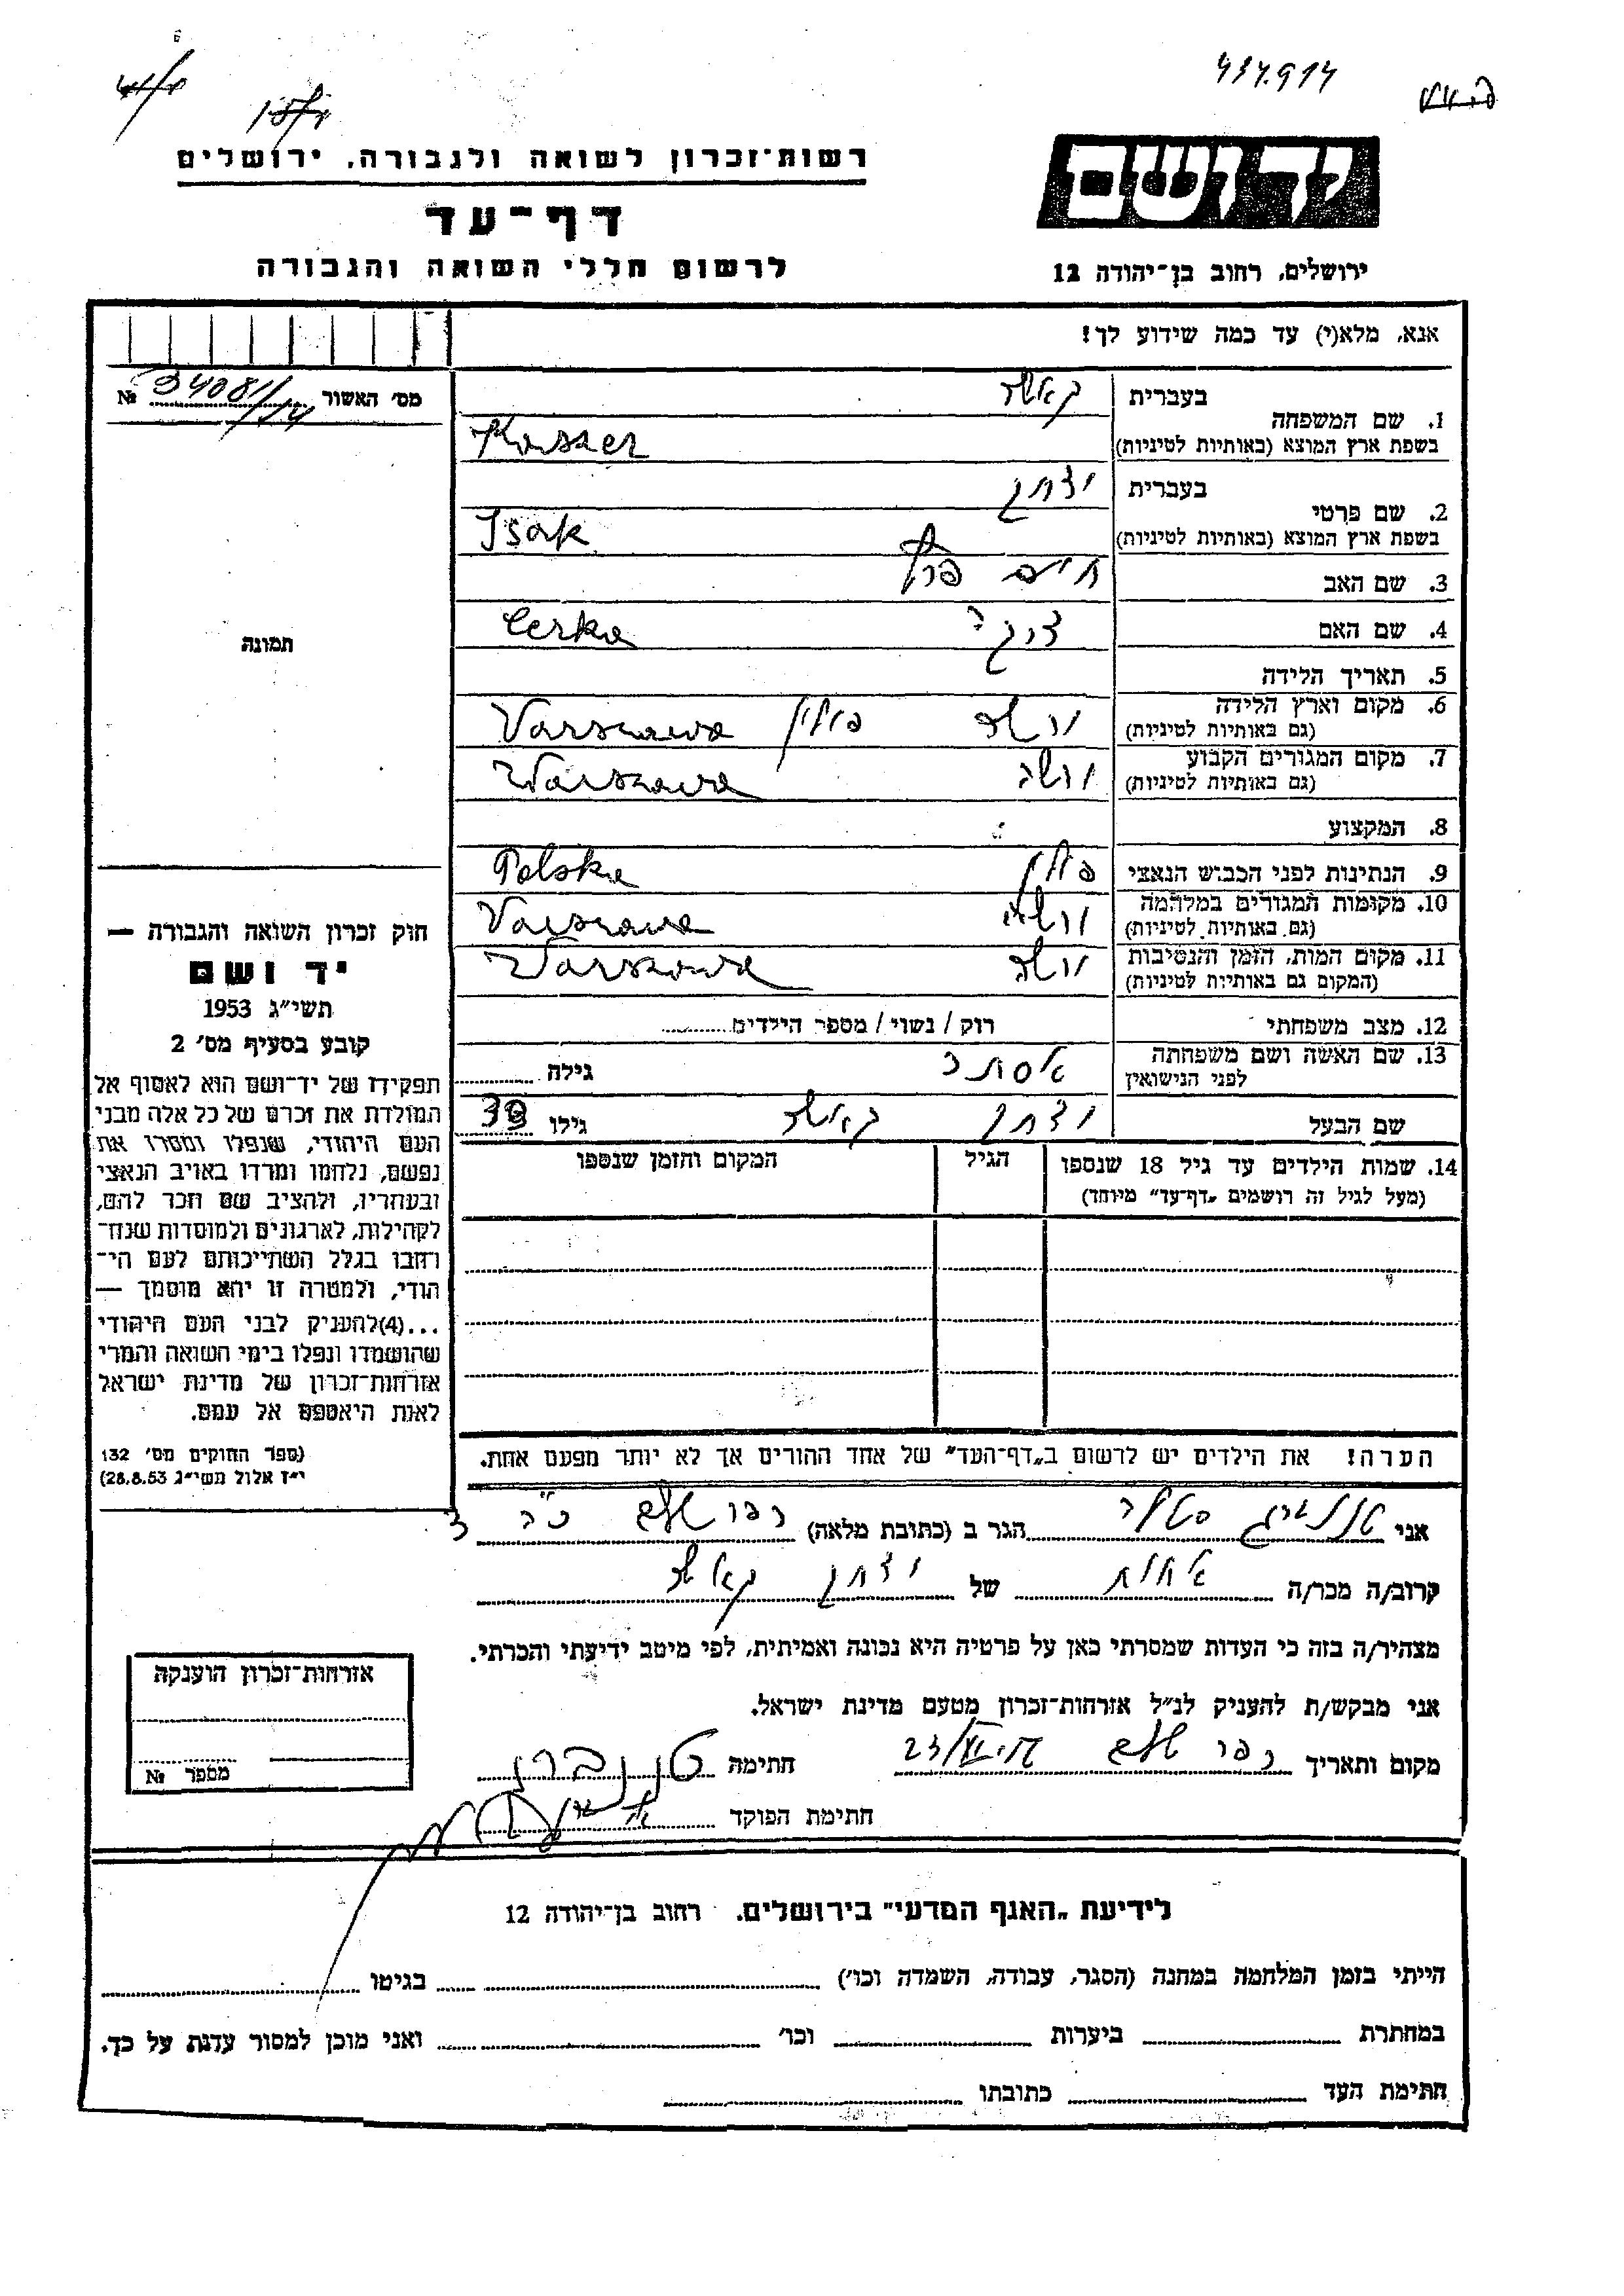 437.914
רשות־זכרון לשואה ולגבורה, ירושלים
יד ושם
דף־עד
לרשום חללי השואה והגבורה
ירושלים, רחוב בן־יהודה 12
אנא, מלא(י) עד כמה שידוע לך!
מס׳ האשור № 34081/14
1. שם המשפחה
בעברית
בשפת ארץ המוצא (באותיות לטיניות) Kosser
2. שם פרטי
בעברית יצחק
בשפת ארץ המוצא (באותיות לטיניות) Isak
3. שם האב חיים
4. שם האם Cerka
5. תאריך הלידה
6. מקום וארץ הלידה ורשה פולין Varszawa
(גם באותיות לטיניות)
7. מקום המגורים הקבוע ורשה Warszawa
(גם באותיות לטיניות)
8. המקצוע
9. הנתינות לפני הכבוש הנאצי פולין Polska
10. מקומות המגורים במלחמה ורשה Varszawa
(גם באותיות לטיניות)
11. מקום המות, הזמן והנסיבות ורשה Warszawa
(המקום גם באותיות לטיניות)
12. מצב משפחתי רוק / נשוי / מספר הילדים
13. שם האשה ושם משפחתה אסתר גילה
לפני הנישואין
שם הבעל יצחק גילו 38
14. שמות הילדים עד גיל 18 שנספו הגיל המקום והזמן שנספו
(מעל לגיל זה רושמים „דף־עד״ מיוחד)
הערה! את הילדים יש לרשום ב„דף־העד״ של אחד ההורים אך לא יותר מפעם אחת.
תמונה
חוק זכרון השואה והגבורה —
יד ושם
תשי״ג 1953
קובע בסעיף מס׳ 2
תפקידו של יד־ושם הוא לאסוף אל
המולדת את זכרם של כל אלה מבני
העם היהודי, שנפלו ומסרו את
נפשם, נלחמו ומרדו באויב הנאצי
ובעוזריו, ולהציב שם וזכר להם,
לקהילות, לארגונים ולמוסדות שנח־
רבו בגלל השתייכותם לעם הי־
הודי, ולמטרה זו יהא מוסמך —
...(4)להעניק לבני העם היהודי
שהושמדו ונפלו בימי השואה והמרי
אזרחות־זכרון של מדינת ישראל
לאות היאספם אל עמם.
(ספר החוקים מס׳ 132
י״ז אלול תשי״ג 28.8.53)
אני הגר ב (כתובת מלאה) כפר שלם
קרוב/ה מכר/ה אחות של יצחק
מצהיר/ה בזה כי העדות שמסרתי כאן על פרטיה היא נכונה ואמיתית, לפי מיטב ידיעתי והכרתי.
אני מבקש/ת להעניק לנ״ל אזרחות־זכרון מטעם מדינת ישראל.
מקום ותאריך כפר שלם חתימה
חתימת הפוקד
אזרחות־זכרון הוענקה
מספר №
לידיעת „האגף המדעי״ בירושלים, רחוב בן־יהודה 12
הייתי בזמן המלחמה במחנה (הסגר, עבודה, השמדה וכו׳) בגיטו
במחתרת ביערות וכו׳ ואני מוכן למסור עדות על כך.
חתימת העד כתובתו